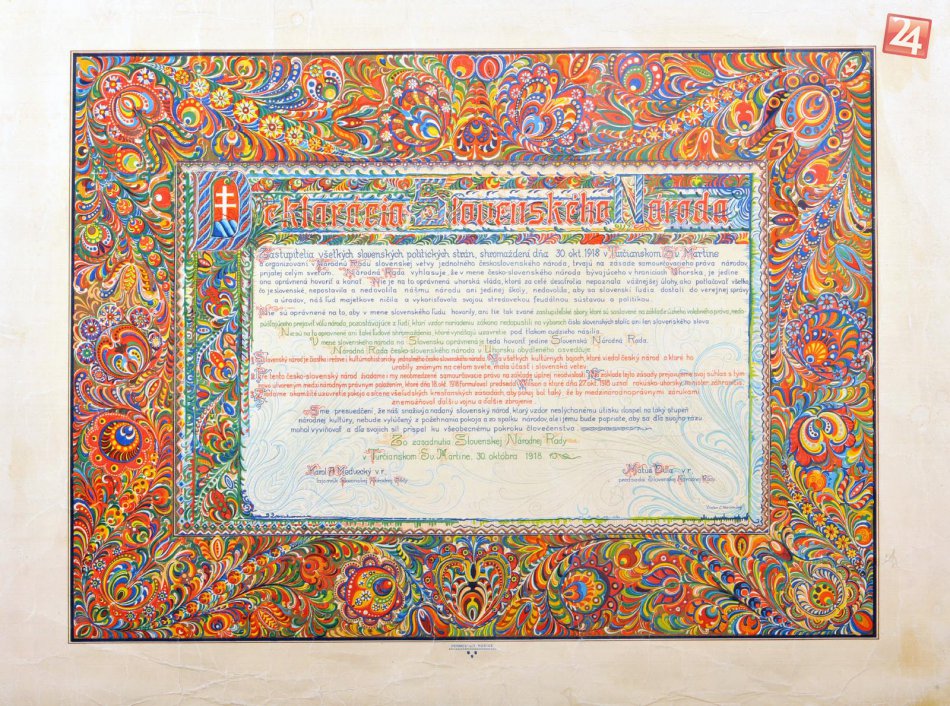 24
Deklarácia Slovenského Národa
Zastupitelia všetkých slovenských politických strán, shromaždení dňa 30 okt. 1918 v Turčianskom Sv. Martine
a organizovaní v Národnú Radu slovenskej vetvy jednotného československého národa, trvajú na zásade samourčovacieho práva národov
prijatej celým svetom. Národná Rada vyhlasuje, že v mene česko-slovenského národa bývajúceho v hraniciach Uhorska, je jedine
ona oprávnená hovoriť a konať. Nie je na to oprávnená uhorská vláda, ktorá za celé desaťročia nepoznala vážnejšej úlohy, ako potlačovať všetko
čo je slovenské, nepostavila a nedovolila nášmu národu ani jedinej školy, nedovolila, aby sa slovenskí ľudia dostali do verejnej správy
a úradov, náš ľud majetkove ničila a vykorisťovala svojou stredovekou feudálnou sústavou a politikou.
Nie sú oprávnené na to, aby v mene slovenského ľudu hovorily, ani tie tak zvané zastupiteľské sbory, ktoré sú sostavené na základe úzkeho volebného práva, nedo-
púšťajúceho prejaviť vôľu národa, pozostávajúce z ľudí, ktorí vzdor nariadeniu zákona nedopustili na výboroch čisto slovenských stolíc ani len slovenského slova
Nie sú na to oprávnené ani také ľudové shromaždenia, ktoré vynášajú uzavretie pod tlakom cudzieho násilia.
V mene slovenského národa na Slovensku oprávnená je teda hovoriť jedine Slovenská Národná Rada.
Národná Rada česko-slovenského národa v Uhorsku obydleného osvedčuje:
Slovenský národ je čiastka i rečove i kultúrno-historicky jednotného česko-slovenského národa. Na všetkých kultúrnych bojoch, ktoré viedol český národ a ktoré ho
urobily známym na celom svete, mala účasť i slovenská vetev.
Pre tento česko-slovenský národ žiadame i my neobmedzené samourčovacie právo na základe úplnej neodvislosti. Na základe tejto zásady prejavujeme svoj súhlas s tým
novo utvoreným medzinárodným právnym položením, ktoré dňa 18. okt. 1918 formuloval predseda Wilson a ktoré dňa 27. okt. 1918 uznal rakúsko-uhorský minister zahraničia.
Žiadame okamžité uzavretie pokoja a síce na všeľudských kresťanských zásadách, aby pokoj bol taký, že by medzinárodnoprávnymi zárukami
znemožňoval ďalšiu vojnu a ďalšie zbrojenie
Sme presvedčení, že náš snaživý a nadaný slovenský národ, ktorý vzdor neslýchanému útisku dospel na taký stupeň
národnej kultúry, nebude vylúčený z požehnania pokoja a zo spolku národov, ale i jemu bude popriate, aby sa dľa svojho rázu
mohol vyvinovať a dľa svojich síl prispel ku všeobecnému pokroku človečenstva
Zo zasadnutia Slovenskej Národnej Rady
v Turčianskom Sv. Martine, 30. októbra 1918.
Karol A Medvecký v.r.
tajomník Slovenskej Národnej Rady
Matúš Dula v.r.
predseda Slovenskej Národnej Rady